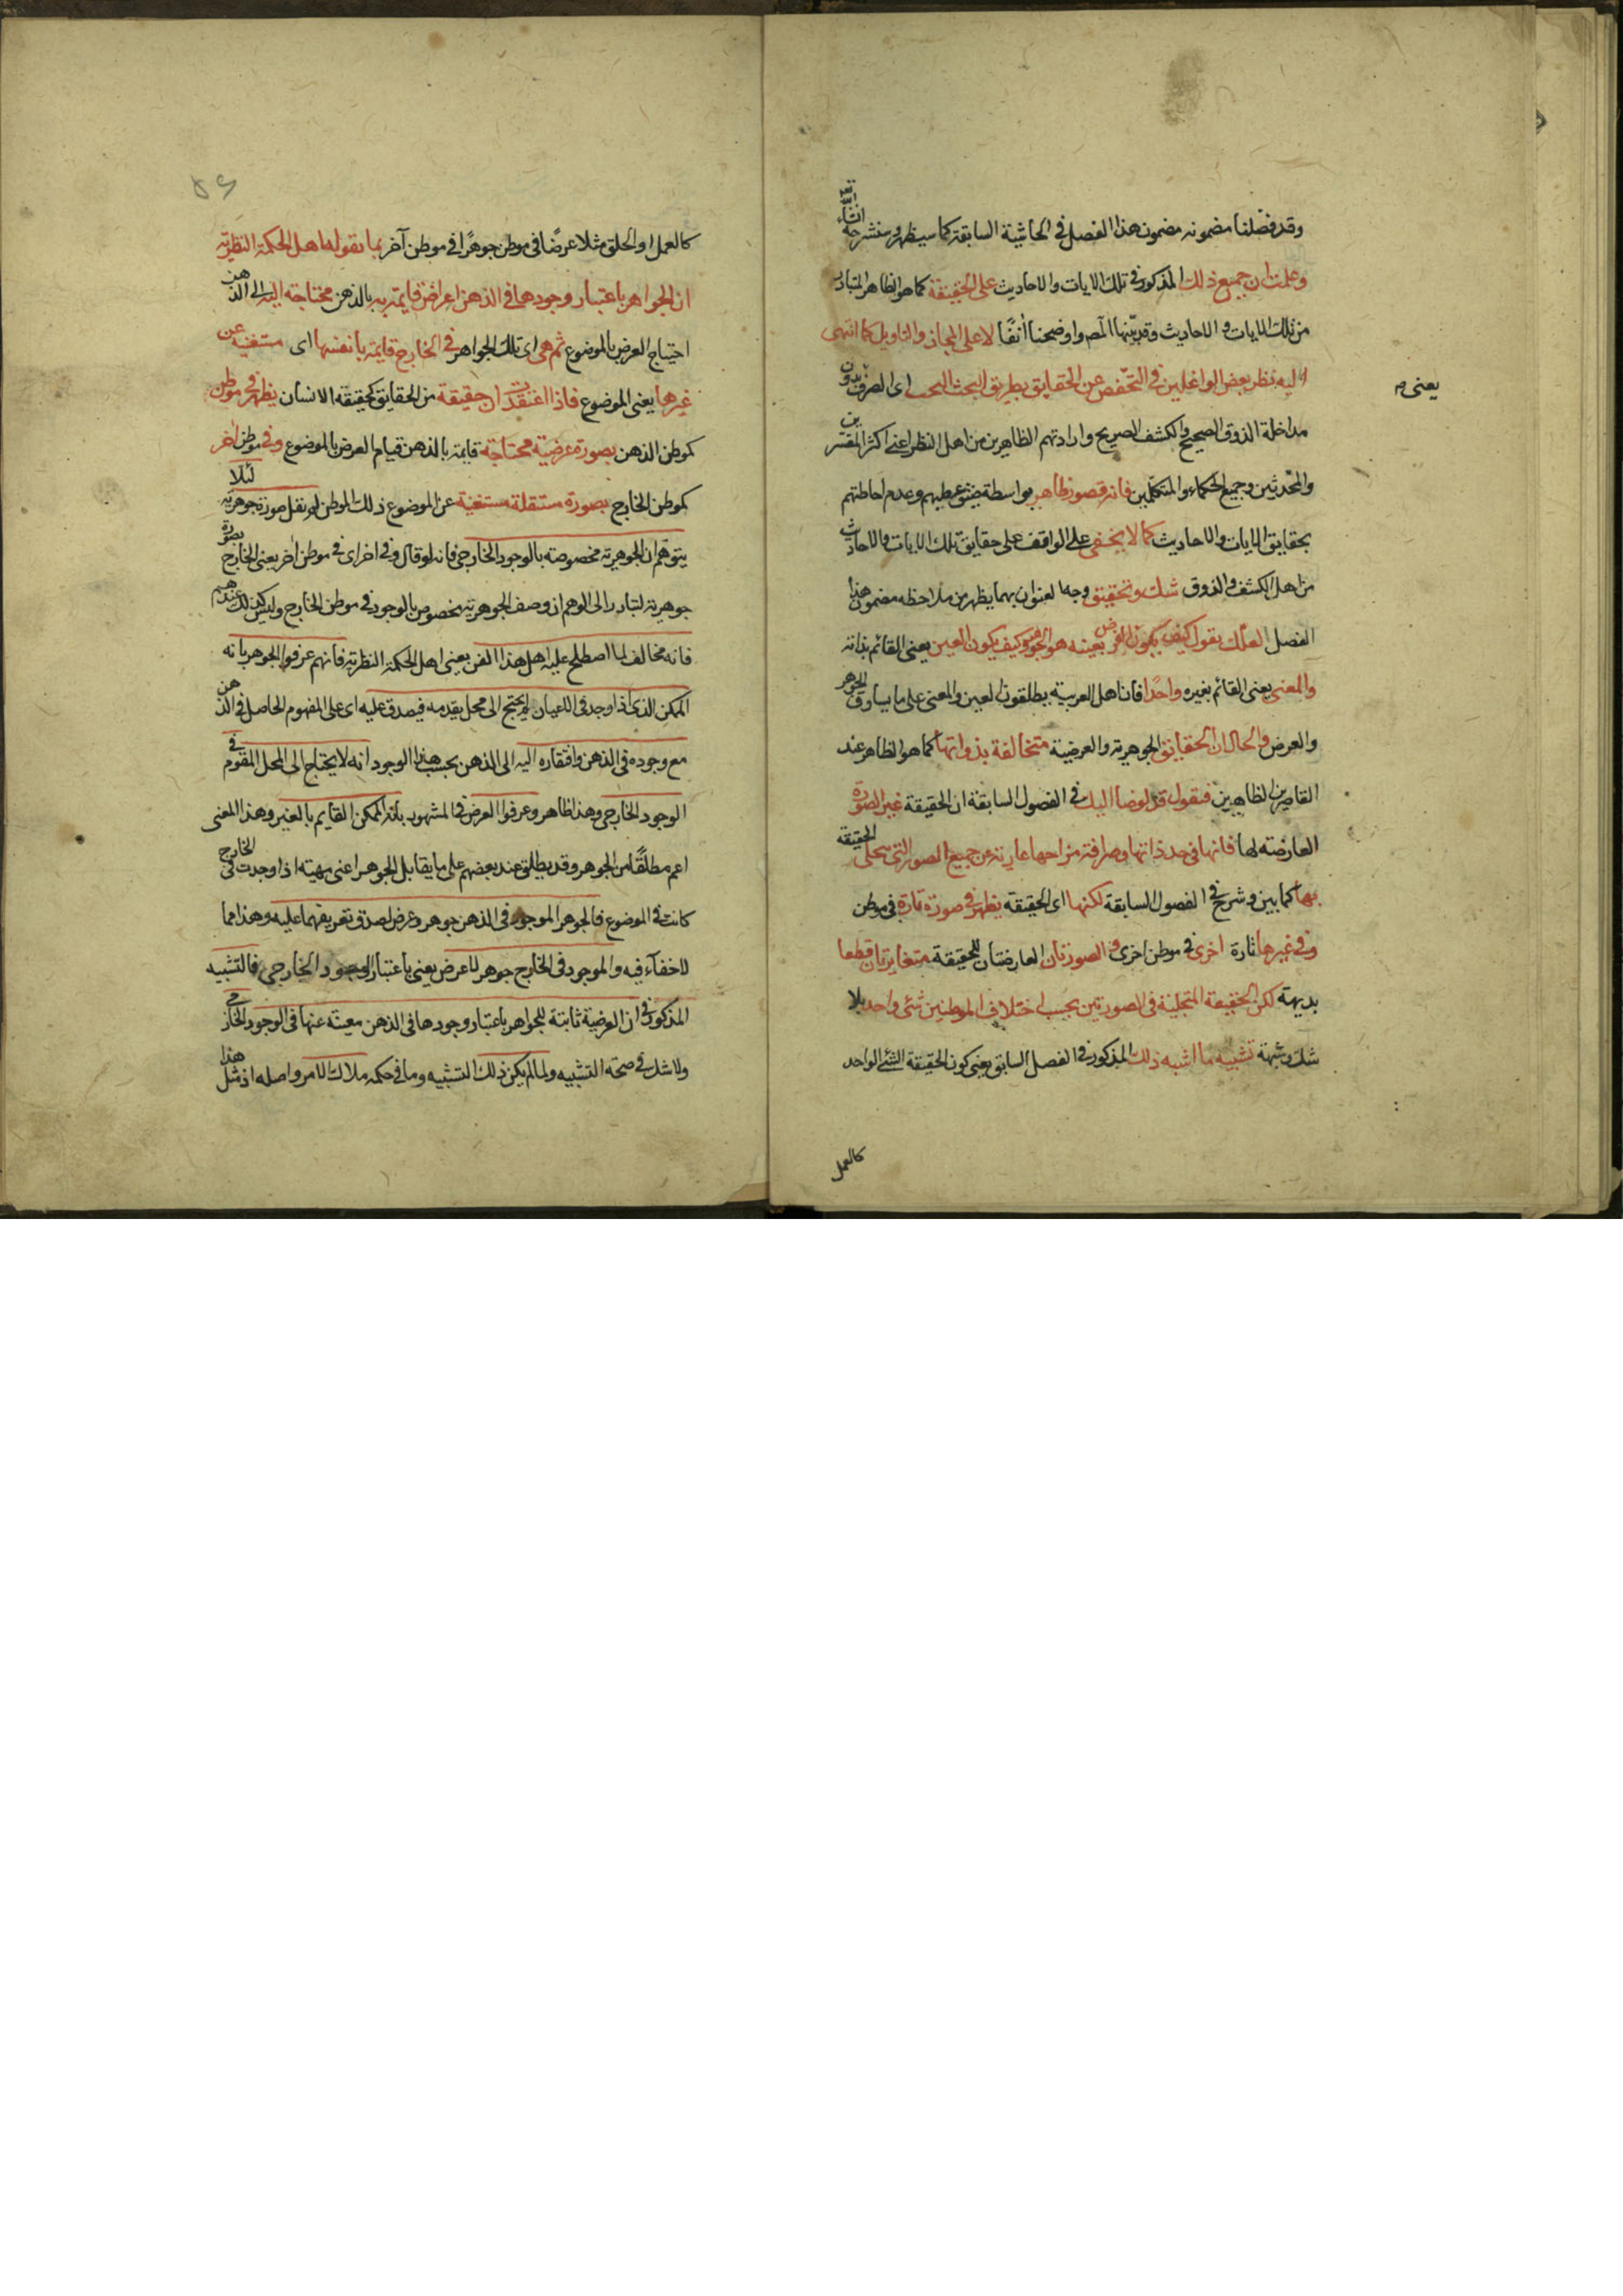 وقد فصلنا مضمونه مضمون هذا الفصل في الحاشية السابقة كما سيظهر وسنشرحه انشاء الله تعه
وعلمت ان جميع ذلك المذكور في تلك الايات والاحاديث على الحقيقة كما هو الظاهر المتبادر
من تلك الايات والاحاديث وقد بينها المص واوضحنا انفا لا على المجاز والتاويل كما انتهى
اليه نظر بعض الواغلين في التفحص عن الحقايق بطريق البحث البحت اى الصرف بدون
يعنى
مداخلة الذوق الصحيح والكشف الصريح وارادتهم الظاهرين من اهل النظر اعنى اكثر المفسرين
والمحدثين وجميع الحكماء والمتكلمين فانه قصور ظاهر بواسطة ضيق عطنهم وعدم احاطتهم
بحقايق الايات والاحاديث كما لا يخفى على الواقف على حقايق تلك الايات والاحاديث
من اهل الكشف والذوق شك وتحقيق وجها لعنوان بهما يظهر من ملاحظه مضمون هذا
الفصل لعلك يقول كيف يكون العرض بعينه هو الجوهر وكيف يكون العين يعنى القائم بذاته
والمعنى يعنى القائم بغيره واحدا فان اهل العربية يطلقون العين والمعنى على ما يساوق الجوهر
والعرض والحال ان الحقايق الجوهرية والعرضية متخالفة بذواتها كما هو الظاهر عند
القاصرين الظاهرين فنقول قد لوضنا اليك في الفصول السابقة ان الحقيقة غير الصورة
العارضة لها فانها في حد ذاتها وصرافة مزاحها عارية عن جميع الصور التى يتحلى الحقيقة
بها كما بين وشرح في الفصول السابقة لكنها اى الحقيقة يظهر في صورة تارة في موطن
وفي غيرها تارة اخرى في موطن اخرى والصورتان العارضتان للحقيقة متغايرتان قطعا
بديهة لكن الحقيقة المتجلية في الصورتين بحسب اختلاف الموطنين شئ واحد بلا
شك وشبهة تشبيه ما اشبه ذلك المذكور في الفصل السابق يعنى كون الحقيقة الشئ الواحد
كالعمل
كالعمل او الخلق مثلا عرضا في موطن جوهرا في موطن آخر بما يقوله اهل الحكمة النظرية
ان الجواهر باعتبار وجودها في الذهن اعراض قايمة به بالذهن محتاجة اليه الى الذهن
احتياج العرض بالموضوع ثم هى اى تلك الجواهر في الخارج قايمة بانفسها اى مستغنية عن
غيرها يعنى الموضوع فاذا اعتقدت ان حقيقة من الحقايق كحقيقة الانسان يظهر في موطن
كموطن الذهن بصورة عرضية محتاجة قايمة بالذهن قيام العرض بالموضوع وفي موطن اخر
كموطن الخارج بصورة مستقلة مستغنية عن الموضوع ذلك الموطن لم نقل صورة جوهرية لئلا
يتوهم ان الجوهرية مخصوصة بالوجود الخارجى فانه لو قال وفي اخرى اى في موطن اخر يعنى الخارج بصورة
جوهرية لتبادر الى الوهم ان وصف الجوهرية مخصوص بالوجود في موطن الخارج وليس كذلك عندهم
فانه مخالف لما اصطلح عليه اهل هذا الفن يعنى اهل الحكمة النظرية فانهم عرفوا الجوهر بانه
الممكن الذى اذا وجد في الاعيان لم يحتج الى محل يقدمه فيصدق عليه اى على المفهوم الحاصل في الذهن
مع وجوده في الذهن وافتقاره اليه الى الذهن بحسب هذا الوجود انه لا يحتاج الى المحل المقوم في
الوجود الخارجى وهذا ظاهر وعرفوا العرض في المشهور بانه الممكن القايم بالغير وهذا المعنى
اعم مطلقا من الجوهر وقد يطلق عند بعضهم على ما يقابل الجوهر اعنى مهية اذا وجدت في الخارج
كانت في الموضوع فالجوهر الموجود في الذهن جوهر وعرض لصدق تعريفهما عليه وهذا مما
لا خفاء فيه والموجود في الخارج جوهر لا عرض يعنى باعتبار الوجود الخارجى فالتشبيه
المذكور في ان العرضية ثابتة للجواهر باعتبار وجودها في الذهن عنها في الوجود الخارجى
ولا شك في صحة التشبيه ولما لم يكن ذلك التشبيه وما في حكمه ملاك الامر واصله اذ مثل هذا